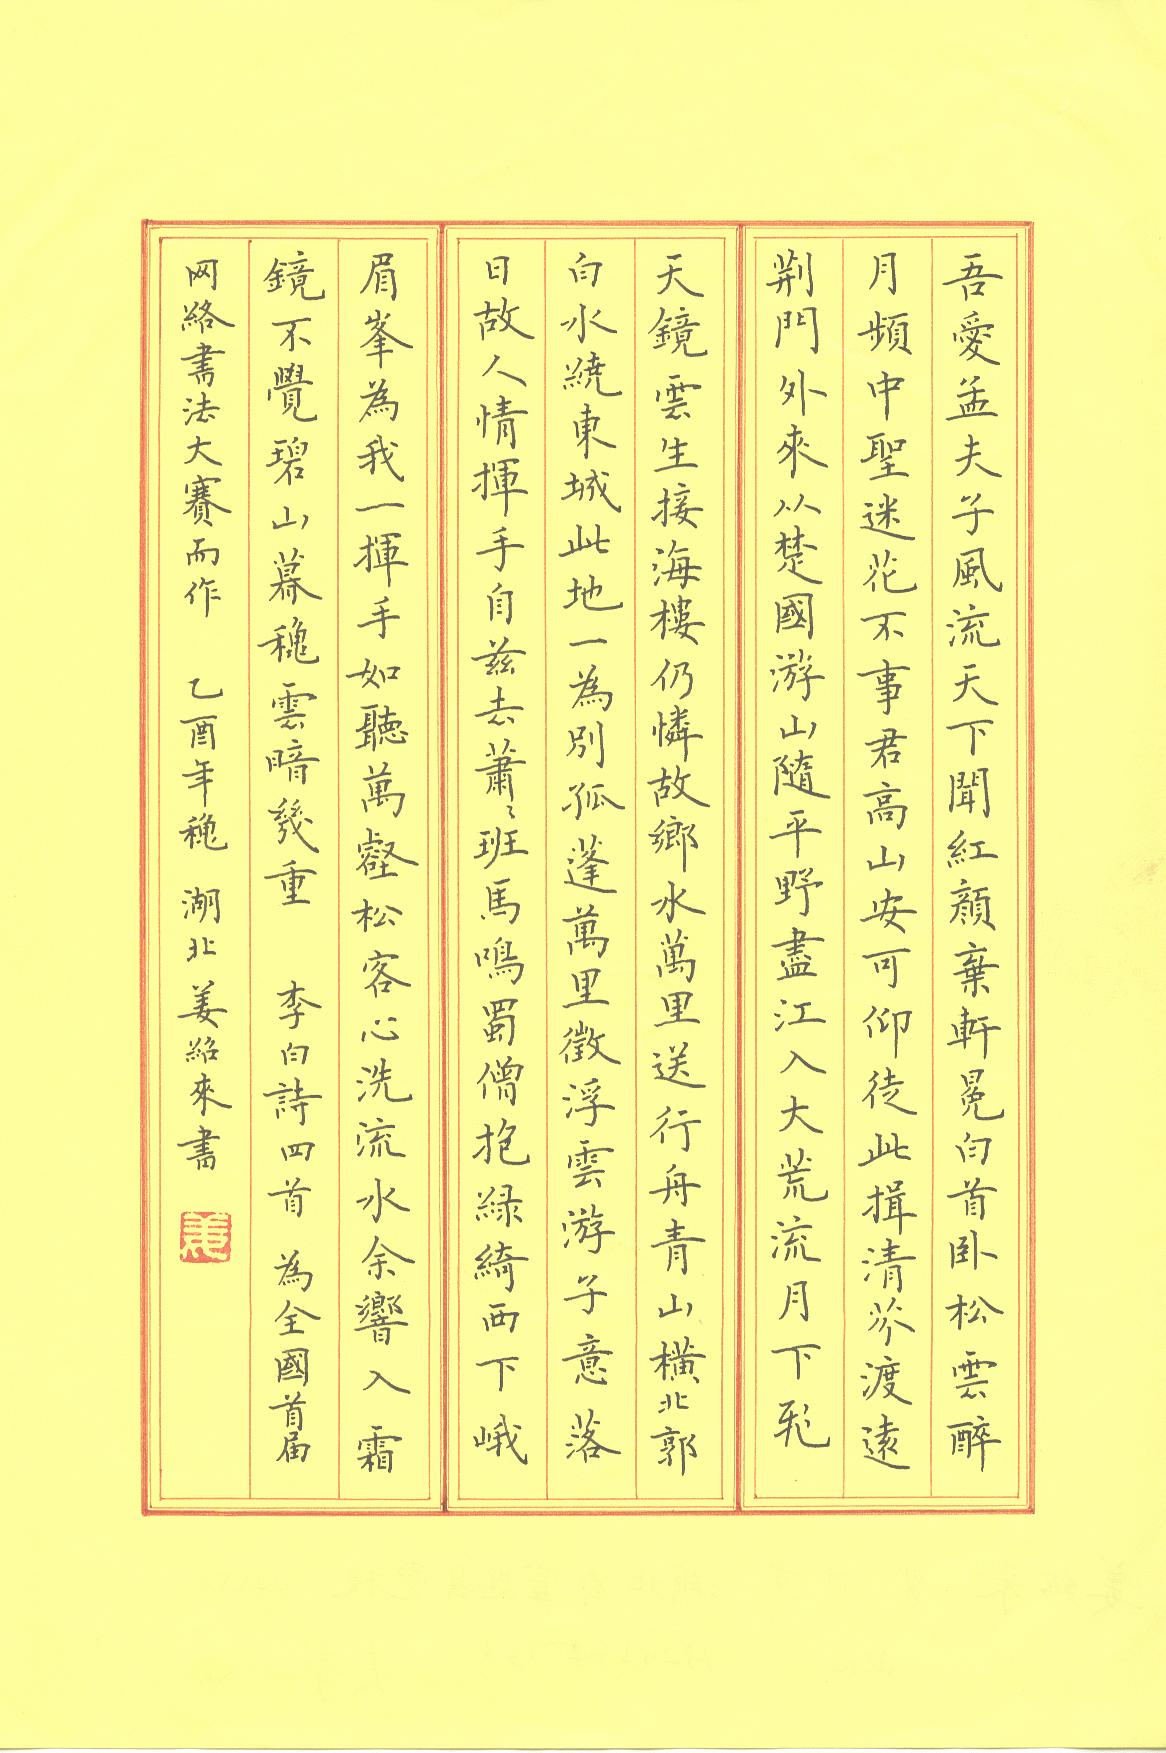 吾愛孟夫子風流天下聞紅顏棄軒冕白首卧松雲醉
月頻中聖迷花不事君高山安可仰徒此揖清芬渡遠
荆門外來从楚國游山隨平野盡江入大荒流月下飛
天鏡雲生接海樓仍憐故鄉水萬里送行舟青山橫北郭
白水繞東城此地一為別孤蓬萬里徵浮雲游子意落
日故人情揮手自茲去蕭〻班馬鳴蜀僧抱綠綺西下峨
眉峯為我一揮手如聽萬壑松客心洗流水余響入霜
鏡不覺碧山暮穐雲暗幾重 李白詩四首 為全國首届
网絡書法大賽而作 乙酉年穐 湖北姜紹來書
姜